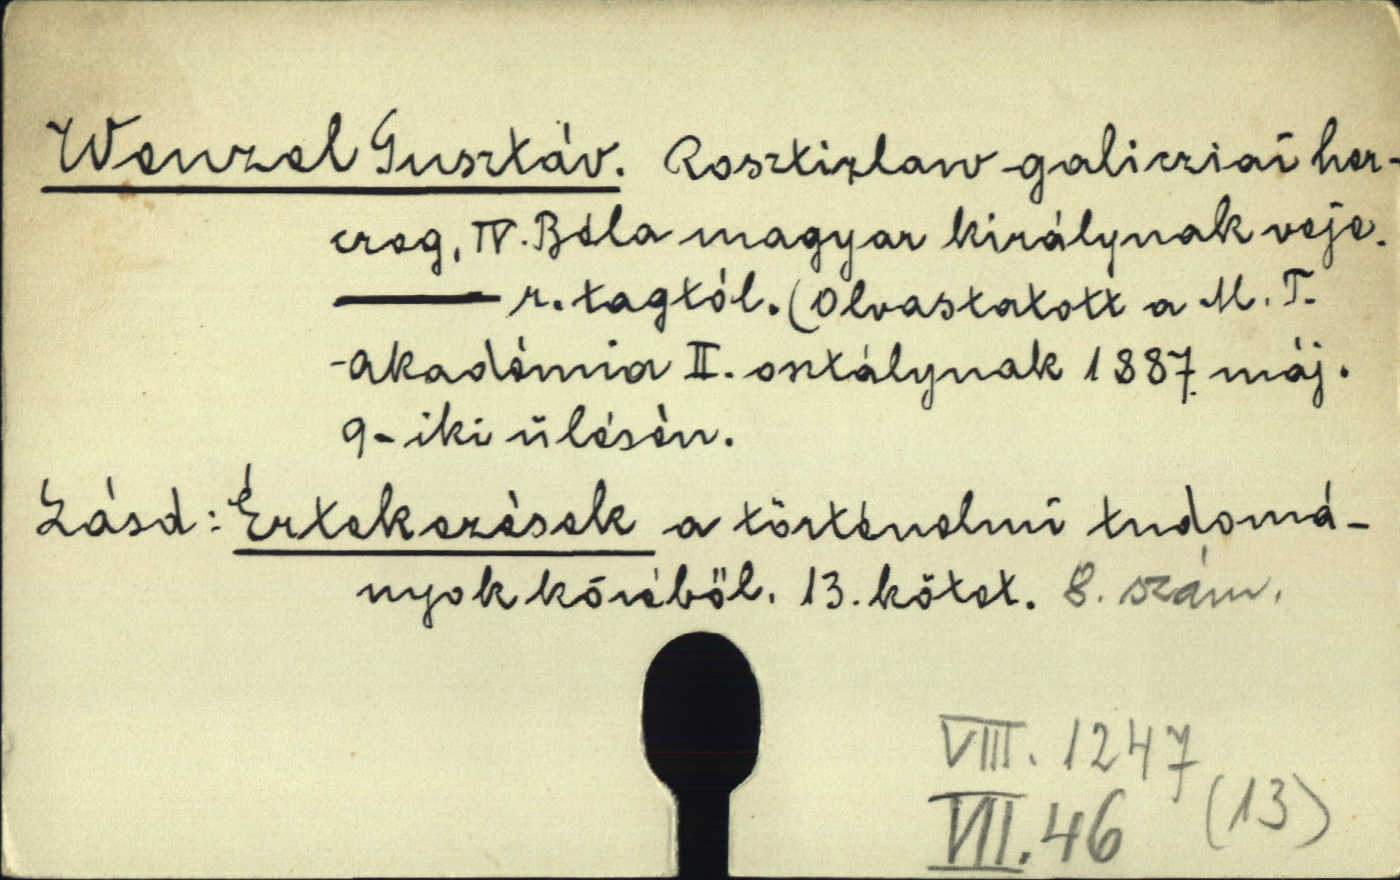 Wenzel Gusztáv. Rosztizlaw galicziai her-
czeg, IV. Béla magyar királynak veje.
——— r. tagtól. (Olvastatott a M. T.
Akadémia II. osztálynak 1887 máj.
9-iki ülésén.
Lásd: Értekezések a történelmi tudomá-
nyok köréből. 13. kötet. 8. szám.
VIII. 1247
VII. 46 (13)